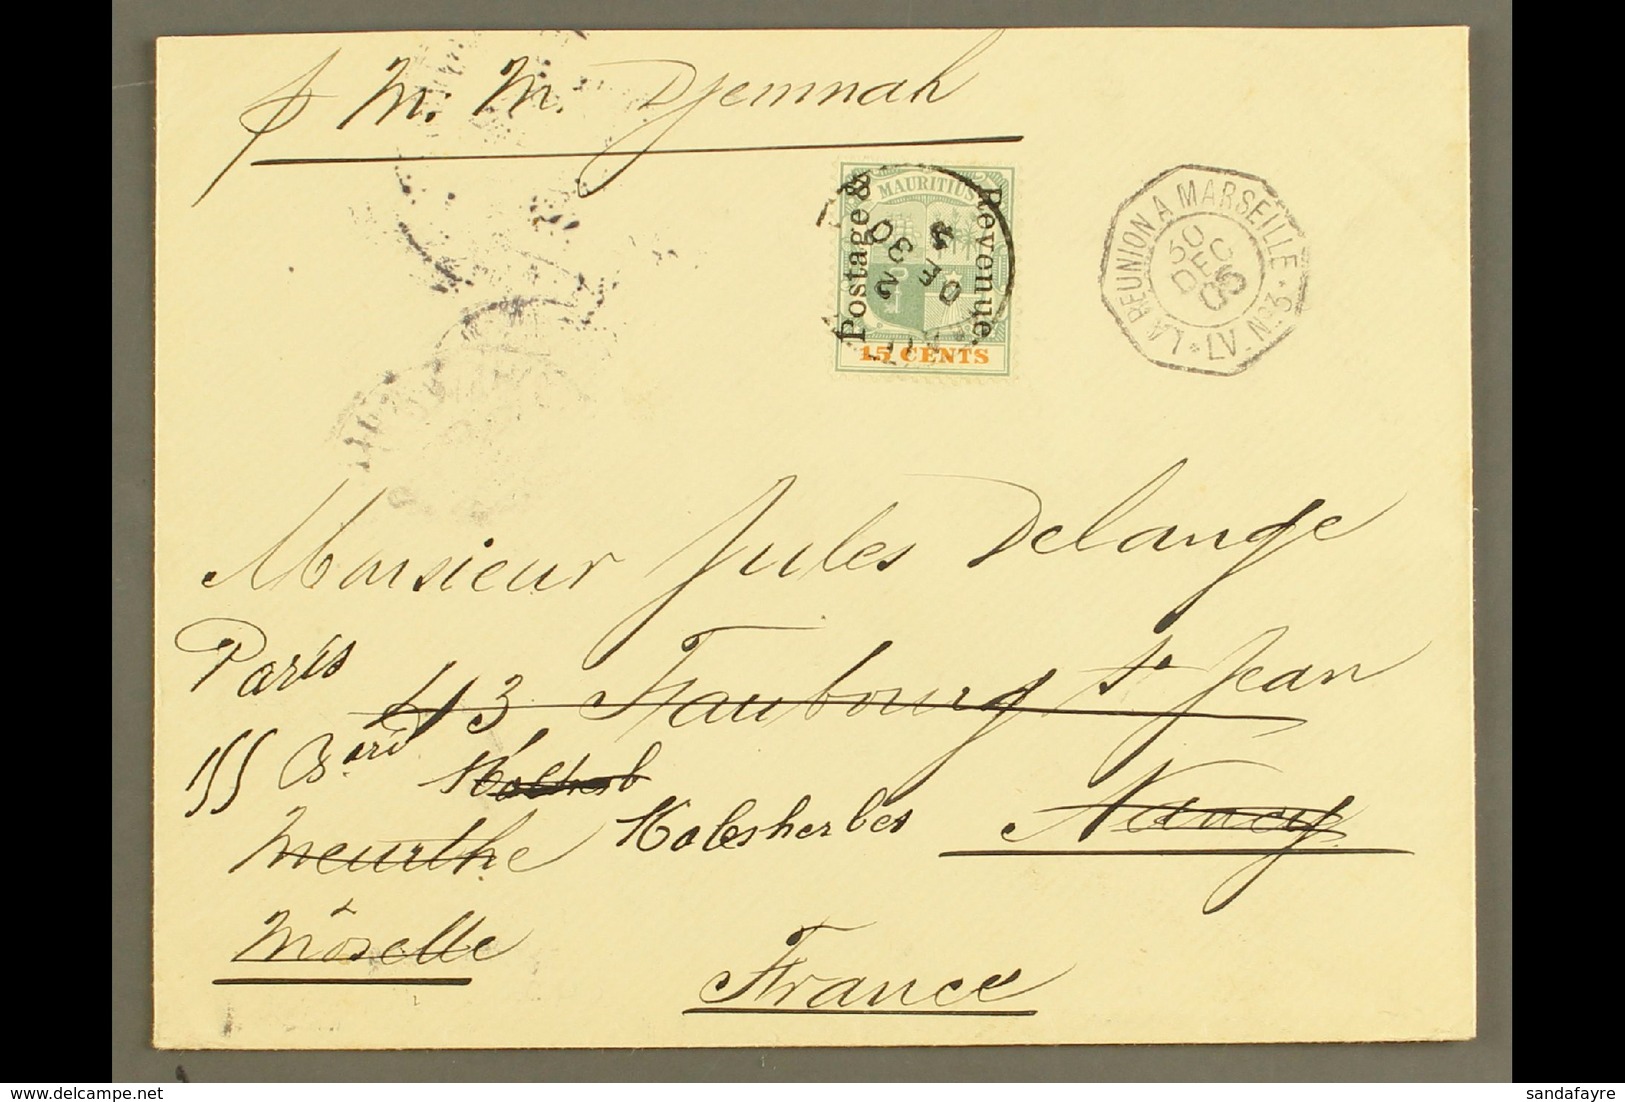 p M. M. Djemnah
MAURITIUS
Postage &
Revenue.
15 CENTS
LA REUNION A MARSEILLE
LV. Nº3
30
DEC
05
Monsieur Jules Delange
Paris
43 Faubourg St Jean
155 Bard
Malesherbes
Nancy
Meurthe
Moselle
France
sandafayre